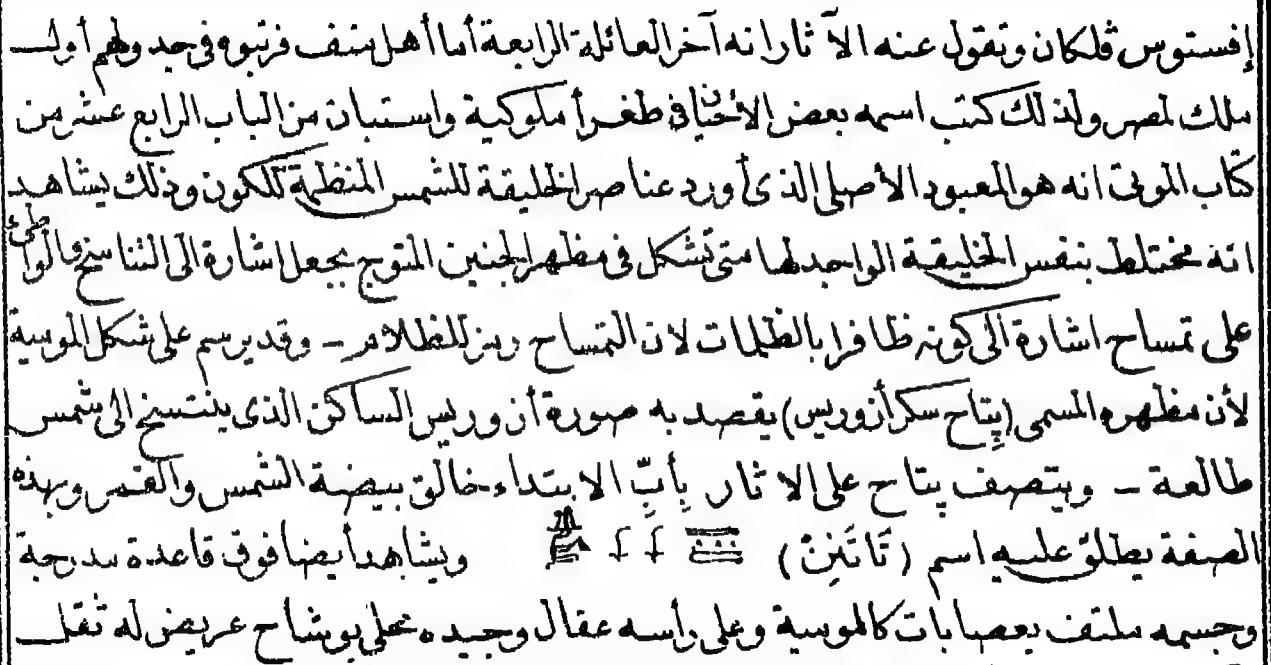 إفستوس ڤلكان وتقول عنه الآثار انه آخر العائلة الرابعة أما أهل منف فرتبوه في جدولهم أول
ملك لمصر ولذلك كتب اسمه بعض الأحيان في طغرا ملوكية واستبان من الباب الرابع عشر من
كتاب الموتى انه هو المعبود الأصلي الذي أورد عناصر الخليقة للشمس المنظمة للكون وذلك يشاهد
انه مختلط بنفس الخليقة الواجد لها متى تشكل في مظهر الجنين المتوج بجعل اشارة الى التناسخ والواطئ
على تمساح اشارة الى كونه ظافرا بالظلمات لان التمساح رمز للظلام – وقد يرسم على شكل الموسية
لأن مظهره المسمى (پِتاح سكر أزوريس) يقصد به صورة أزوريس الساكن الذي ينتسخ الى شمس
طالعة – ويتصف پتاح على الاثار بِأَبِّ الابتداء خالق بيضة الشمس والقمر وبهذه
الصفة يطلق عليه اسم (تَاتَنِنْ) ويشاهد أيضا فوق قاعدة مدرجة
وجسمه ملتف بعصابات كالموسية وعلى رأسه عقال وجيده محلى بوشاح عريض له ثقل